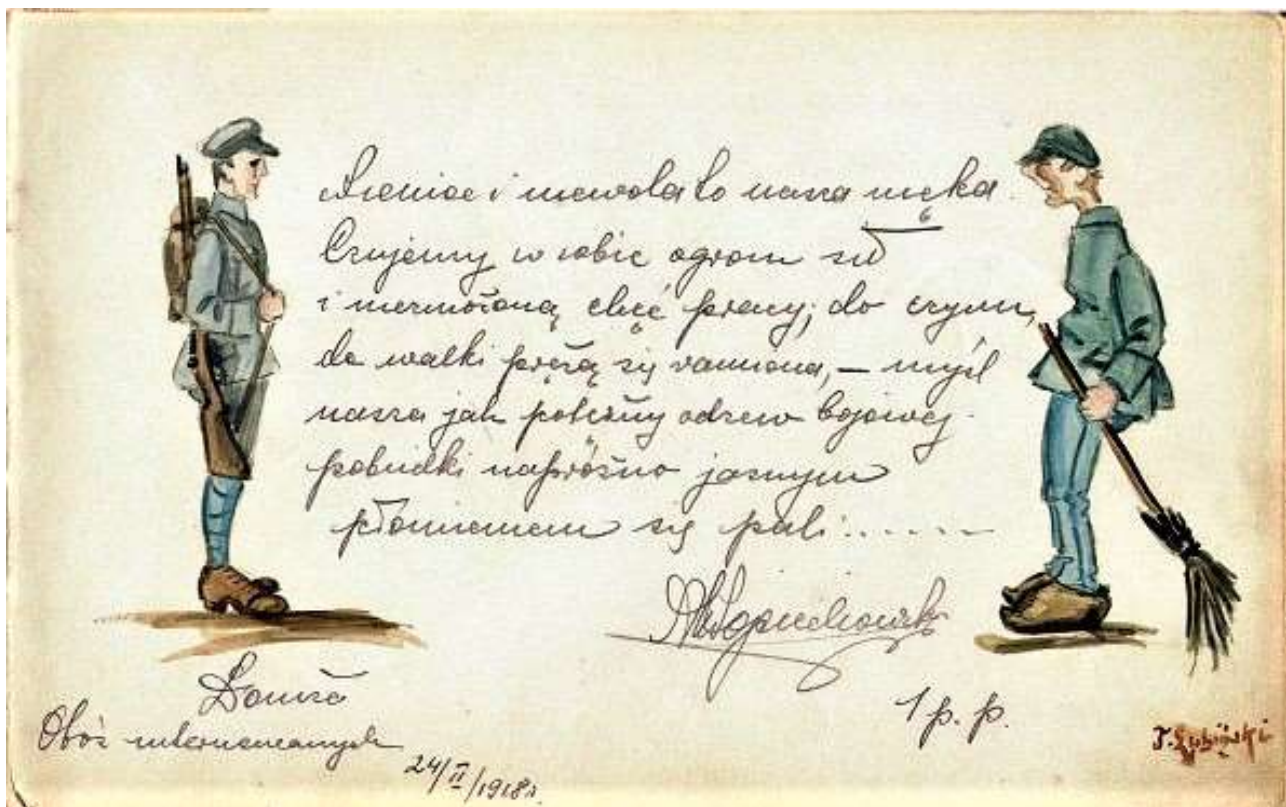 Niemoc i niewola to nasza męka.
Czujemy w sobie ogrom sił
i niezmożoną chęć pracy; do czynu,
do walki prężą się ramiona, — myśl
nasza jak potężny odzew bojowej
pobudki napróżno jasnym
płomieniem się pali......
1 p. p.
Łomża
Obóz internowanych
24/II/1918r.
Lubiński